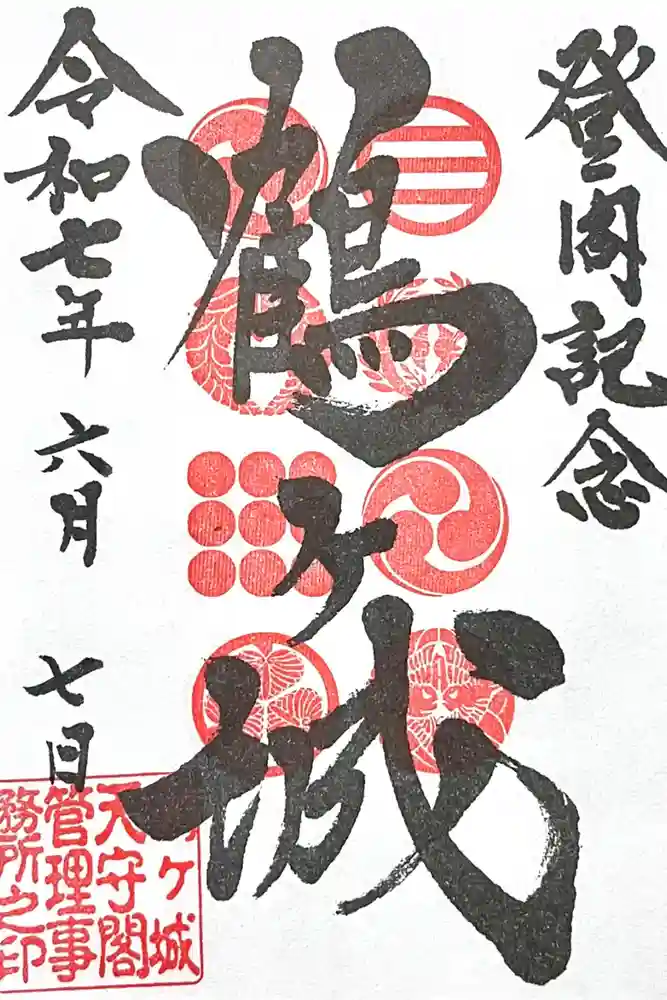 登閣記念
鶴ヶ城
令和七年 六月 七日
鶴ヶ城
天守閣
管理事
務所之印